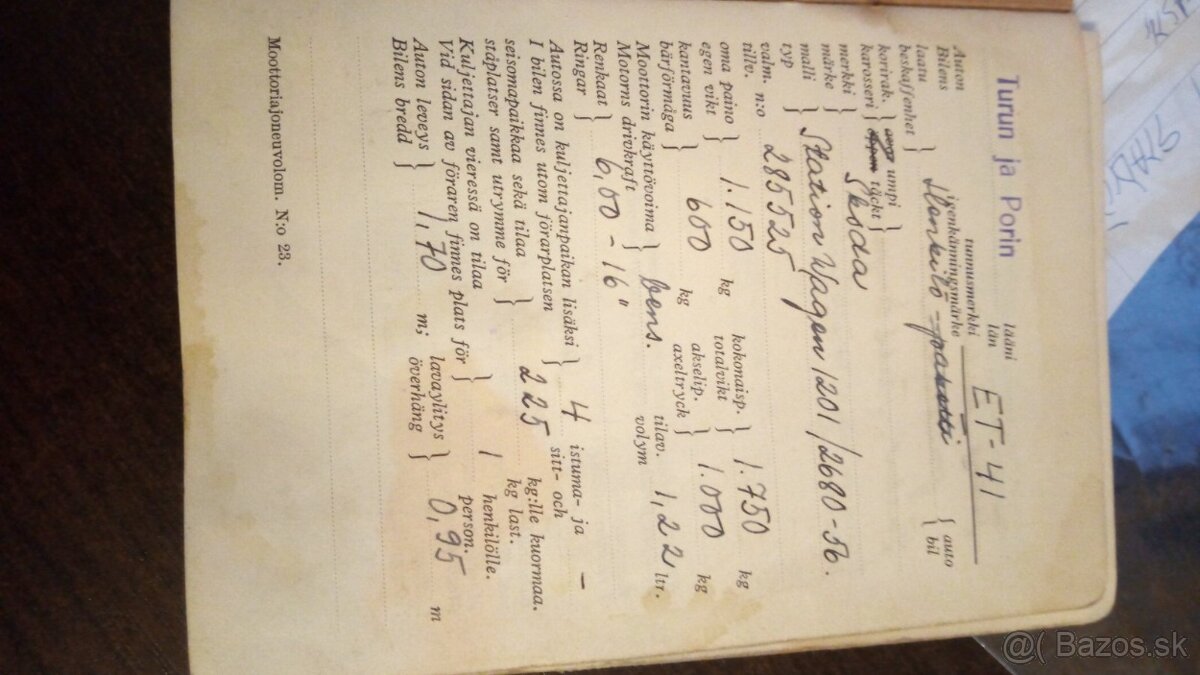 Turun ja Porin lääni
län
tunnusmerkki
igenkänningsmärke ET-41
Auton
Bilens
laatu
beskaffenhet } Henkilö-pakotti { auto
bil
korirak.
karosseri } avoi umpi
öppen täckt }
merkki
märke } Skoda
malli
typ } Station Wagon 1201/2680-56.
valm. n:o
tillv. 285525
oma paino
egen vikt } 1.150 kg kokonaisp.
totalvikt } 1.750 kg
kantavuus
bärförmåga } 600 kg akselip.
axeltryck } 1.000 kg
Moottorin käyttövoima
Motorns drivkraft } bens. tilav.
volym 1,22 ltr.
Renkaat
Ringar } 6,00-16"
Autossa on kuljettajanpaikan lisäksi
I bilen finnes utom förarplatsen } 4 istuma- ja
sitt- och -
seisomapaikkaa sekä tilaa
ståplatser samt utrymme för } 225 kg:lle kuormaa.
kg last.
Kuljettajan vieressä on tilaa
Vid sidan av föraren finnes plats för } 1 henkilölle.
person.
Auton leveys
Bilens bredd } 1,70 m; lavaylitys
överhäng } 0,95 m
Moottoriajoneuvolom. N:o 23.
@( Bazos.sk